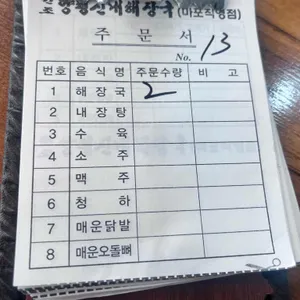 원조 양평신내해장국(마포직영점)
주 문 서
No. 13
번호 음 식 명 주문수량 비 고
1 해 장 국 2
2 내 장 탕
3 수 육
4 소 주
5 맥 주
6 청 하
7 매운닭발
8 매운오돌뼈